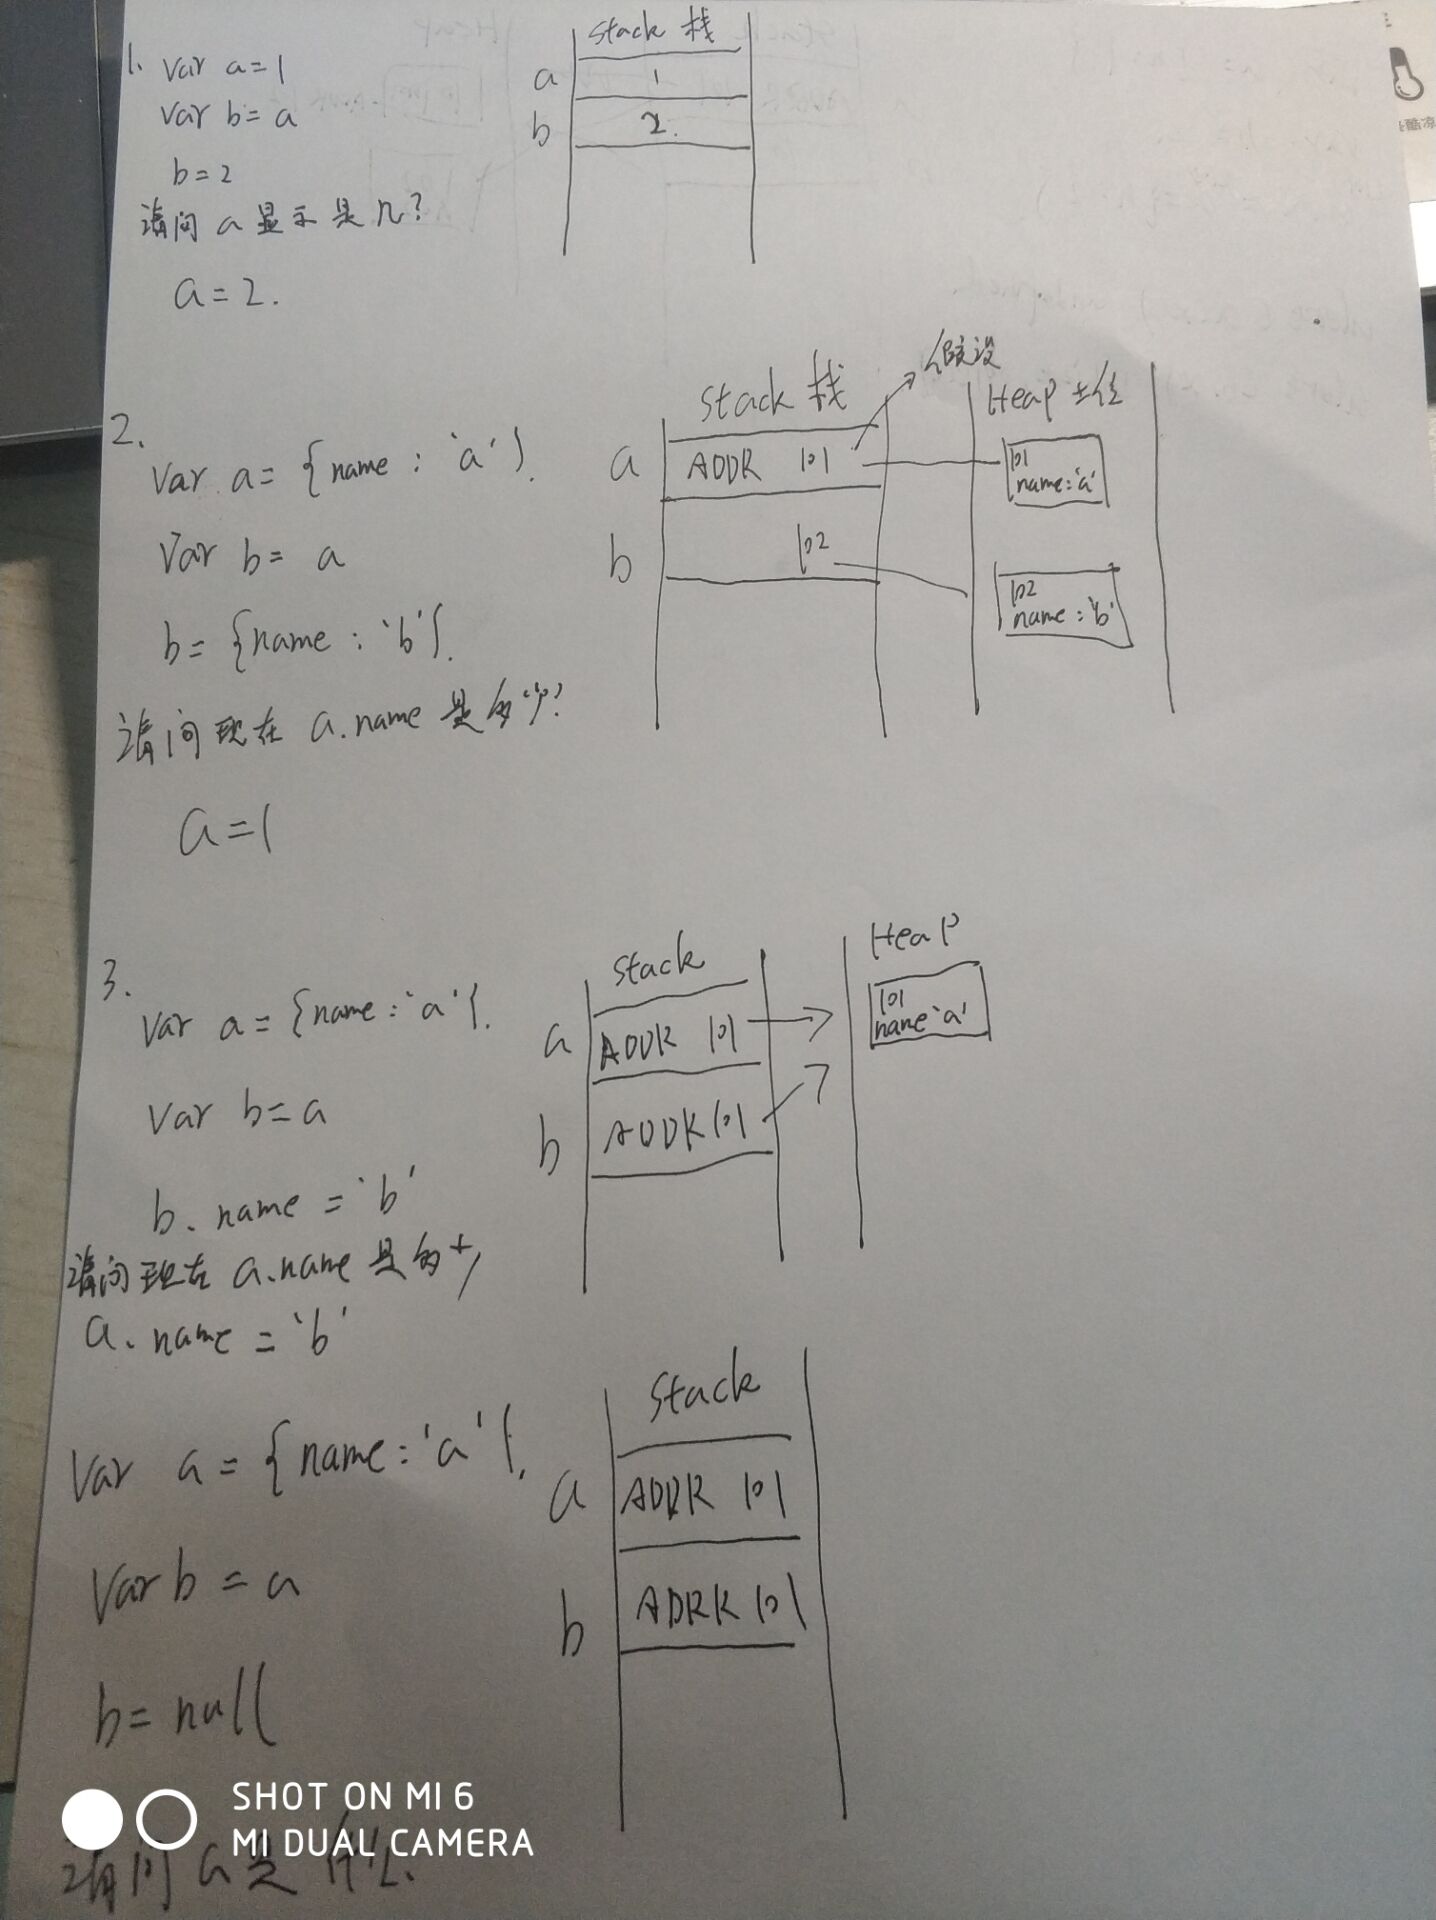 1. Var a=1
Var b=a
b=2
请问 a 显示是几?
a=2.
Stack 栈
a 1
b 2.
2.
Var a={name:'a'}.
Var b=a
b={name:'b'}.
请问现在 a.name 是多少?
a=1
Stack 栈
假设
a ADDR 101
b 102
Heap
101
name:'a'
102
name:'b'
3.
Var a={name:'a'}.
Var b=a
b.name='b'
请问现在 a.name 是多少
a.name='b'
Stack
a ADDR 101
b ADDR 101
Heap
101
name'a'
Var a={name:'a'}.
Var b=a
b=null
请问 a 是什么.
Stack
a ADDR 101
b ADRR 101
SHOT ON MI 6
MI DUAL CAMERA